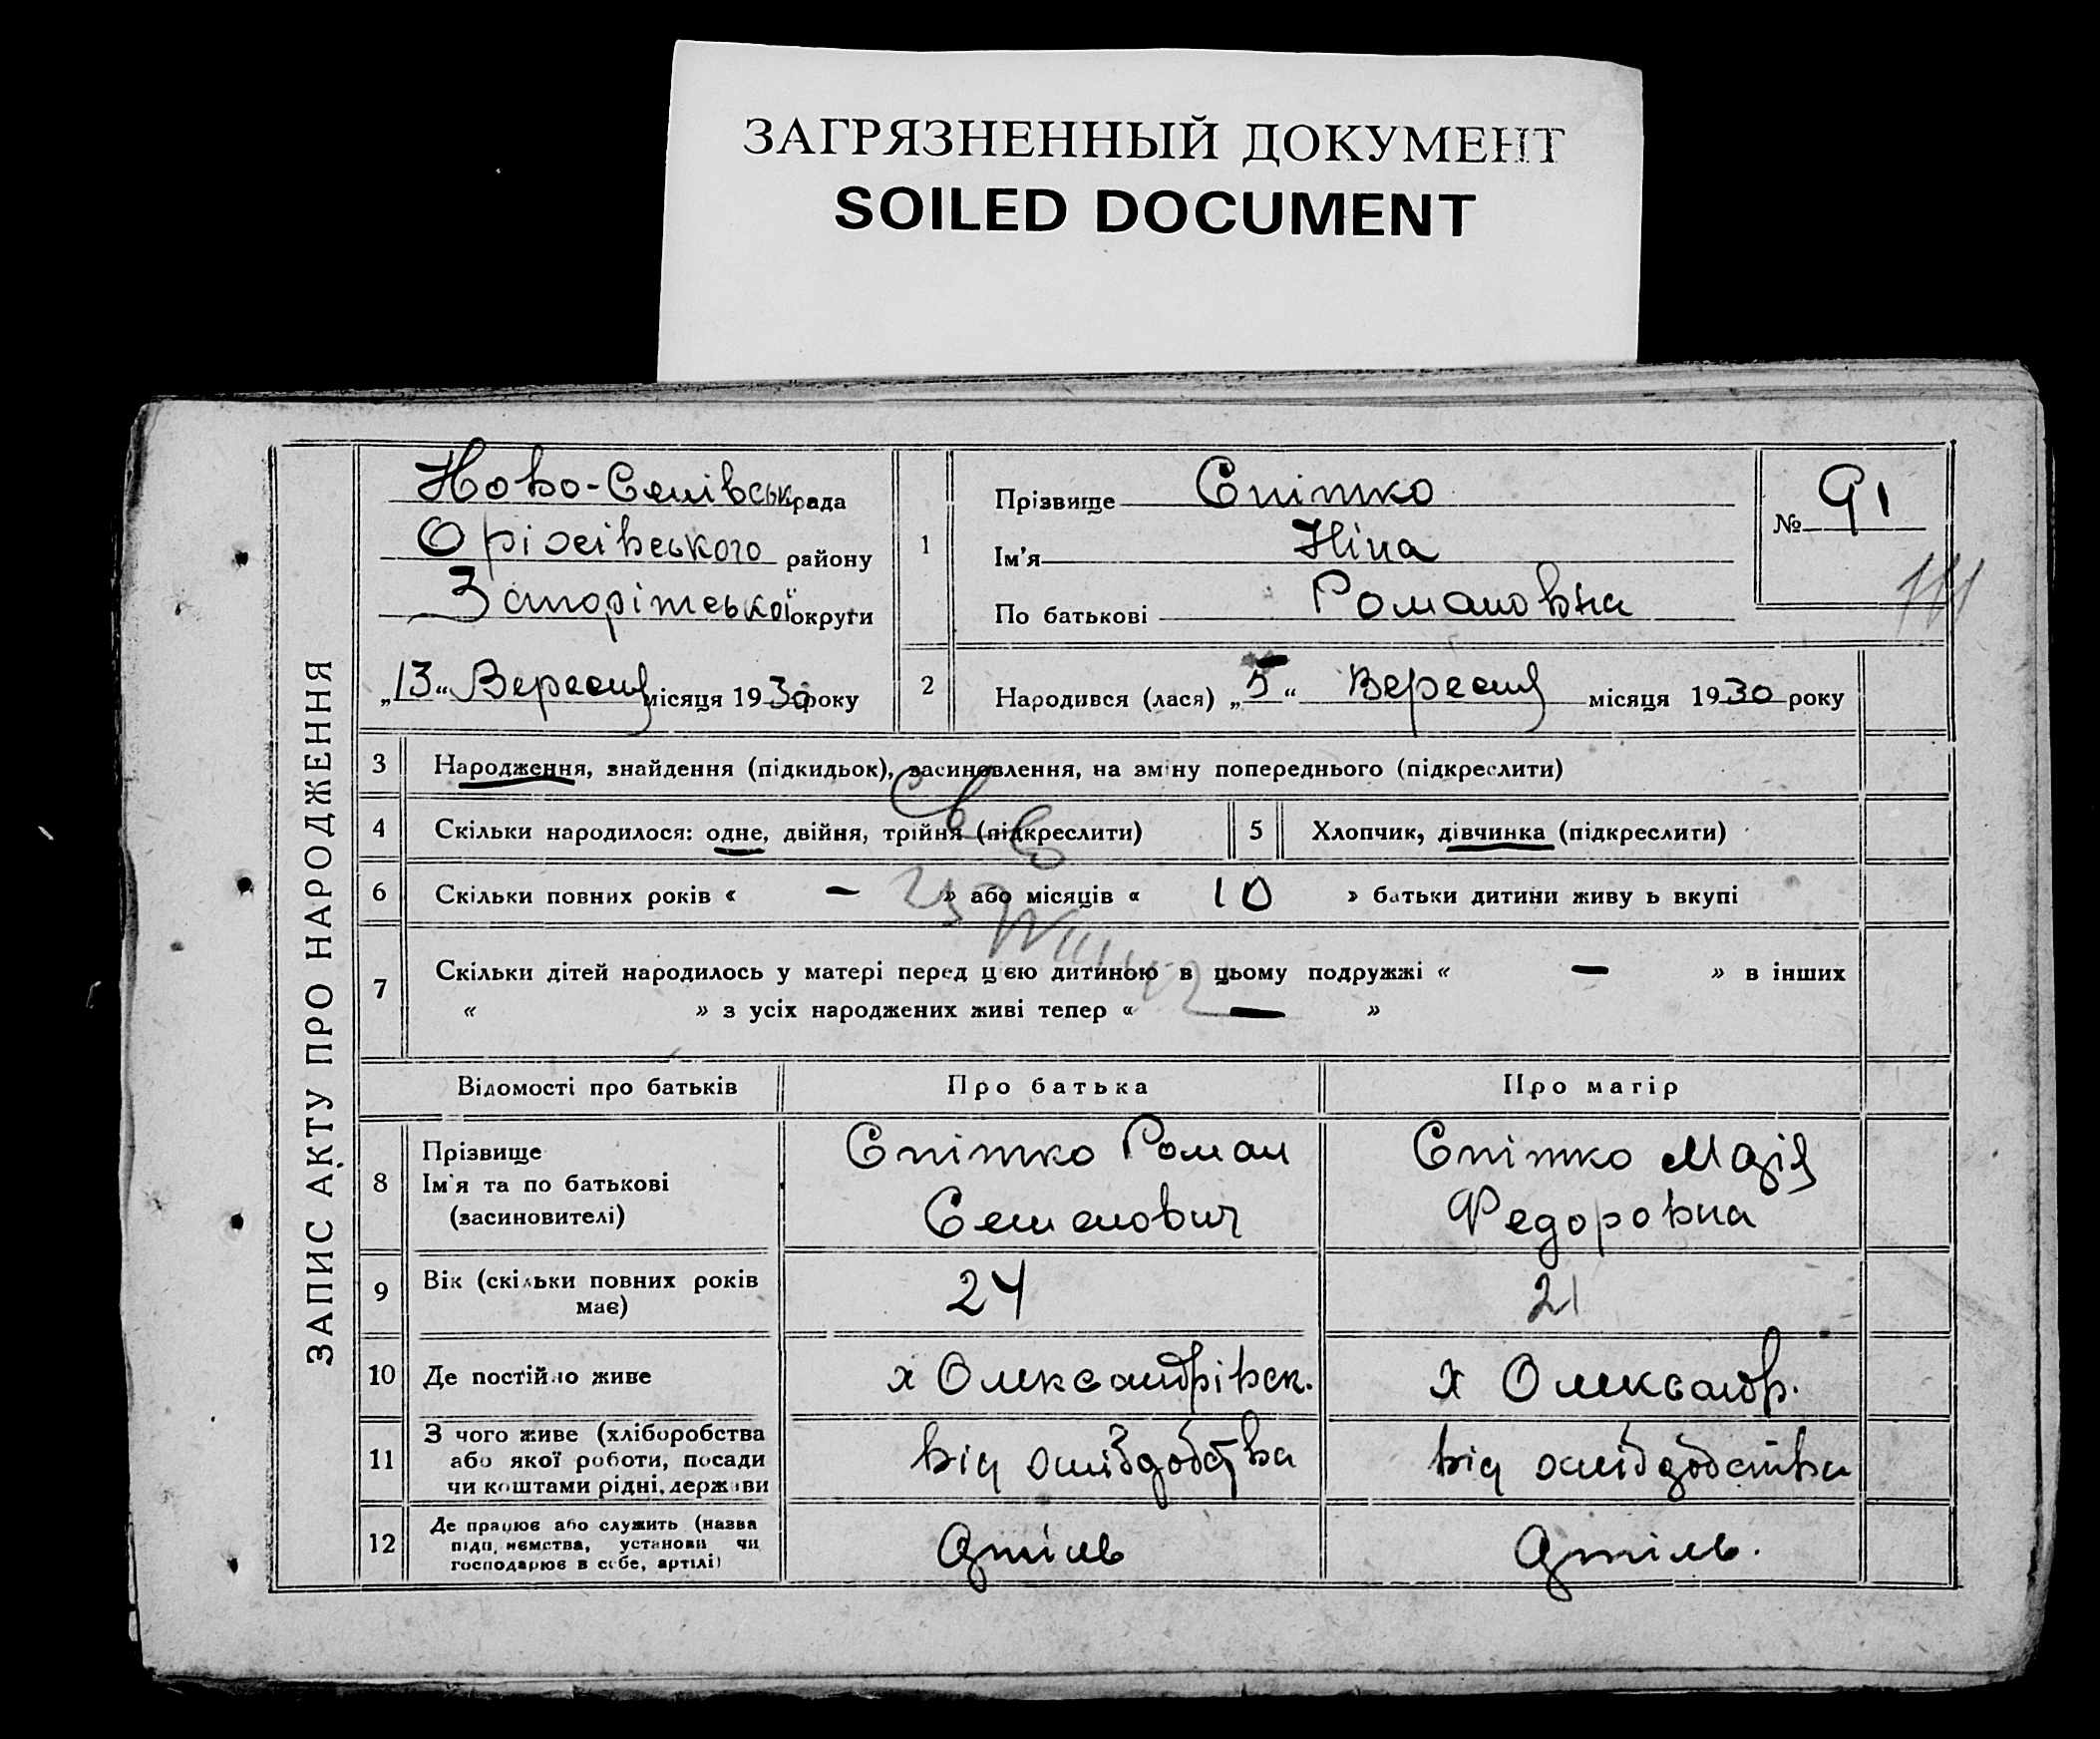 ЗАГРЯЗНЕННЫЙ ДОКУМЕНТ
SOILED DOCUMENT
ЗАПИС АКТУ ПРО НАРОДЖЕННЯ
Ново-Селівськ рада
Оріхівського району
Запоріжської округи
„13“ Вересня місяця 1930 року
1
Прізвище Снітко
Ім'я Ніна
По батькові Романовна
№ 91
2 Народився (лася) „5“ Вересня місяця 1930 року
3 Народження, знайдення (підкидьок), засиновлення, на зміну попереднього (підкреслити)
4 Скільки народилося: одне, двійня, трійня (підкреслити) 5 Хлопчик, дівчинка (підкреслити)
6 Скільки повних років « — » або місяців « 10 » батьки дитини живу ь вкупі
7 Скільки дітей народилось у матері перед цією дитиною в цьому подружжі « — » в інших
« » з усіх народжених живі тепер « — »
Відомості про батьків Про батька Про матір
8 Прізвище
Ім'я та по батькові
(засиновителі)
Снітко Роман
Семенович
Снітко Марія
Федоровна
9 Вік (скільки повних років
має)
24 21
10 Де постійно живе х Олександрівск. х Олександр.
11 З чого живе (хліборобства
або якої роботи, посади
чи коштами рідні, держави
від хлібробства від хлібробства
12 Де працює або служить (назва
підприємства, установи чи
господарює в себе, артілі)
Артіль Артіль.